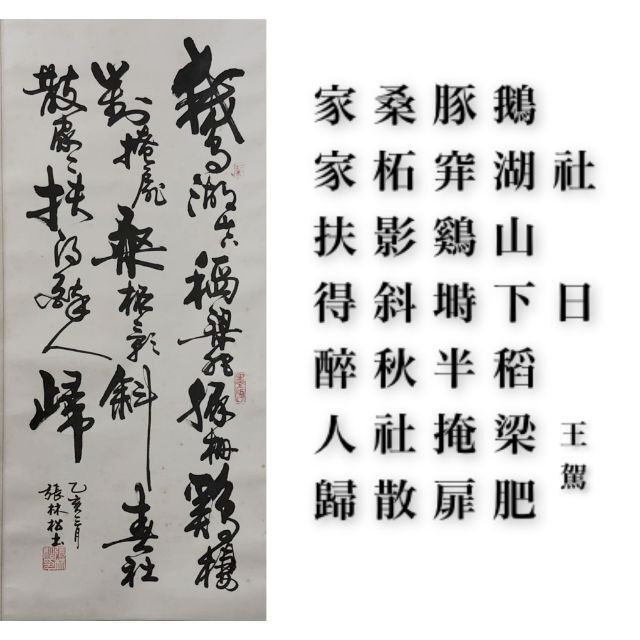 鵝湖山下稻粱肥豚柵鷄棲
對掩扉桑柘影斜春社
散家々扶得醉人歸
乙亥三月
張林
社日
王駕
鵝湖山下稻梁肥
豚穽鷄塒半掩扉
桑柘影斜秋社散
家家扶得醉人歸